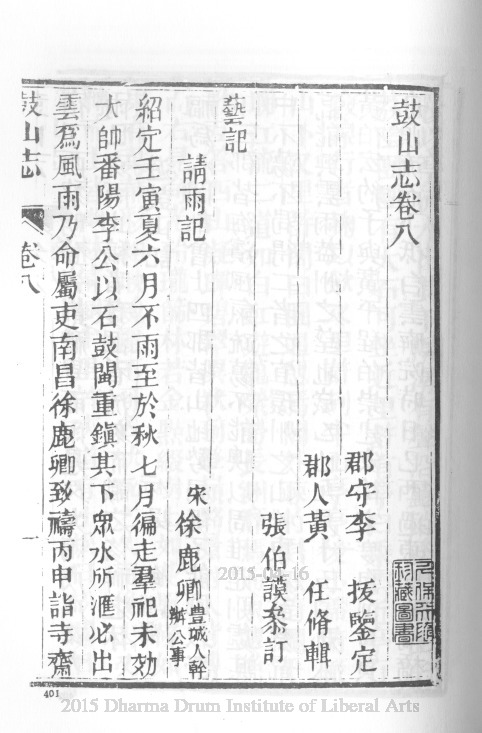 鼓山志卷八
郡守李 拔鑒定
郡人黃 任脩輯
張伯謨叅訂
藝記
請雨記
宋徐鹿卿豊城人幹辦公事
紹定壬寅夏六月不雨至於秋七月徧走羣祀未効
大帥番陽李公以石鼓閩重鎮其下衆水所滙必出
雲爲風雨乃命屬吏南昌徐鹿卿致禱丙申詣寺齋
鼓山志
卷八
一
401
2015-04-16
2015 Dharma Drum Institute of Liberal Arts